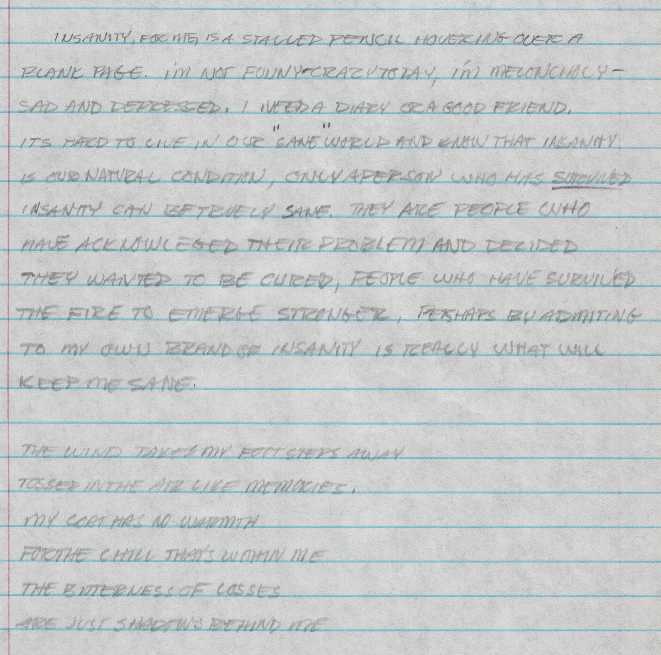 INSANITY, FOR ME, IS A STALLED PENCIL HOVERING OVER A
BLANK PAGE. I'M NOT FUNNY-CRAZY TODAY, I'M MELONCHOLY-
SAD AND DEPRESSED. I NEED A DIARY OR A GOOD FRIEND.
ITS HARD TO LIVE IN OUR "SANE" WORLD AND KNOW THAT INSANITY
IS OUR NATURAL CONDITION, ONLY A PERSON WHO HAS SURVIVED
INSANITY CAN BE TRUELY SANE. THEY ARE PEOPLE WHO
HAVE ACKNOWLEGED THEIR PROBLEM AND DECIDED
THEY WANTED TO BE CURED, PEOPLE WHO HAVE SURVIVED
THE FIRE TO EMERGE STRONGER. PERHAPS BY ADMITING
TO MY OWN BRAND OF INSANITY IS REALLY WHAT WILL
KEEP ME SANE.
THE WIND TAKES MY FOOTSTEPS AWAY
TOSSED IN THE AIR LIKE MEMORIES.
MY COAT HAS NO WARMTH
FOR THE CHILL THAT'S WITHIN ME
THE BITTERNESS OF LOSSES
ARE JUST SHADOWS BEHIND ME